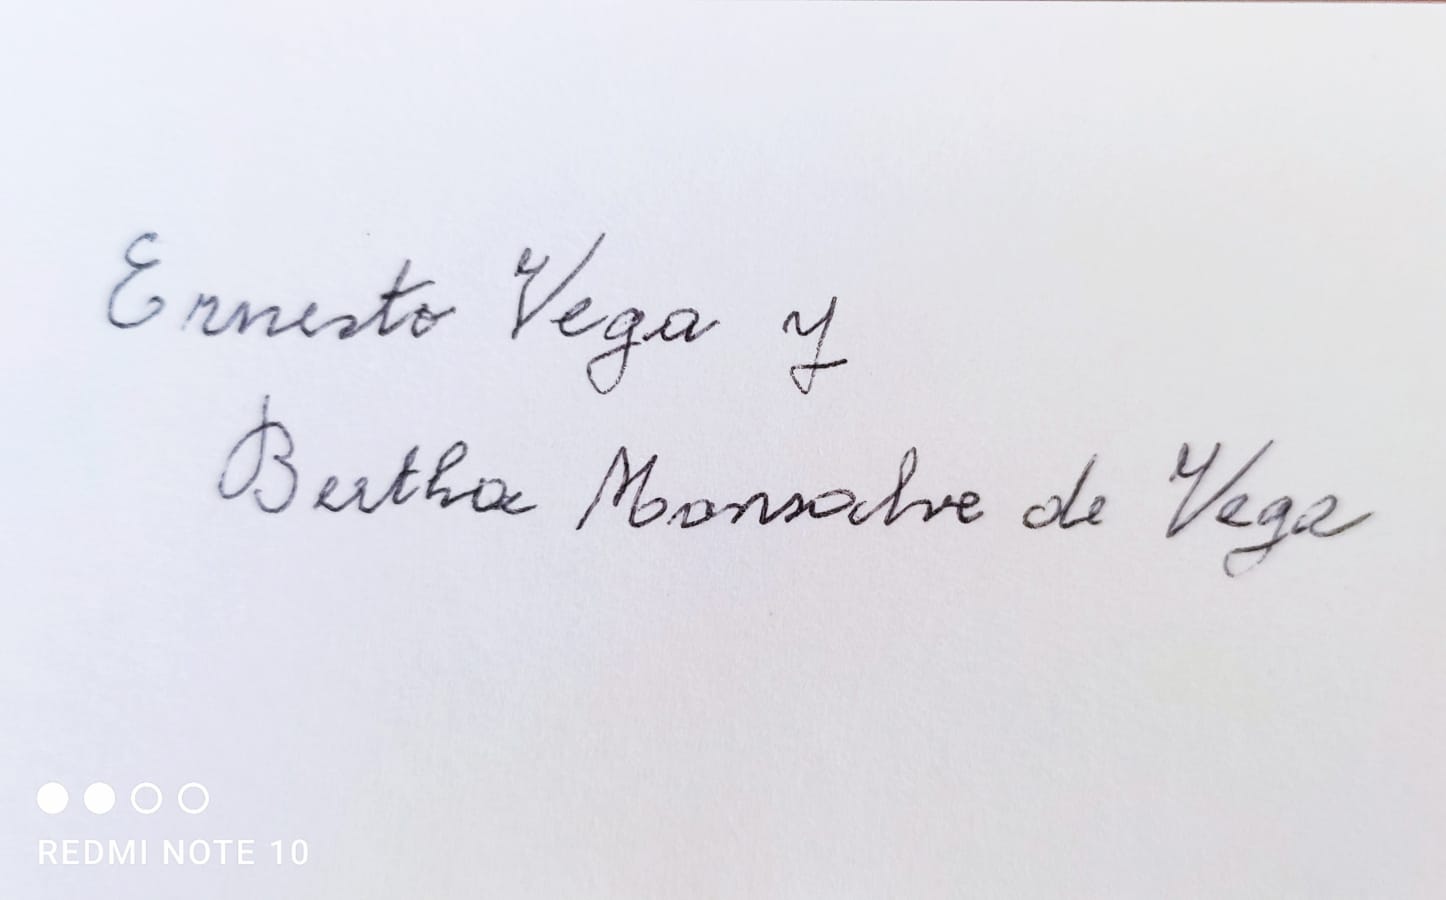 Ernesto Vega y
Bertha Monsalve de Vega
REDMI NOTE 10